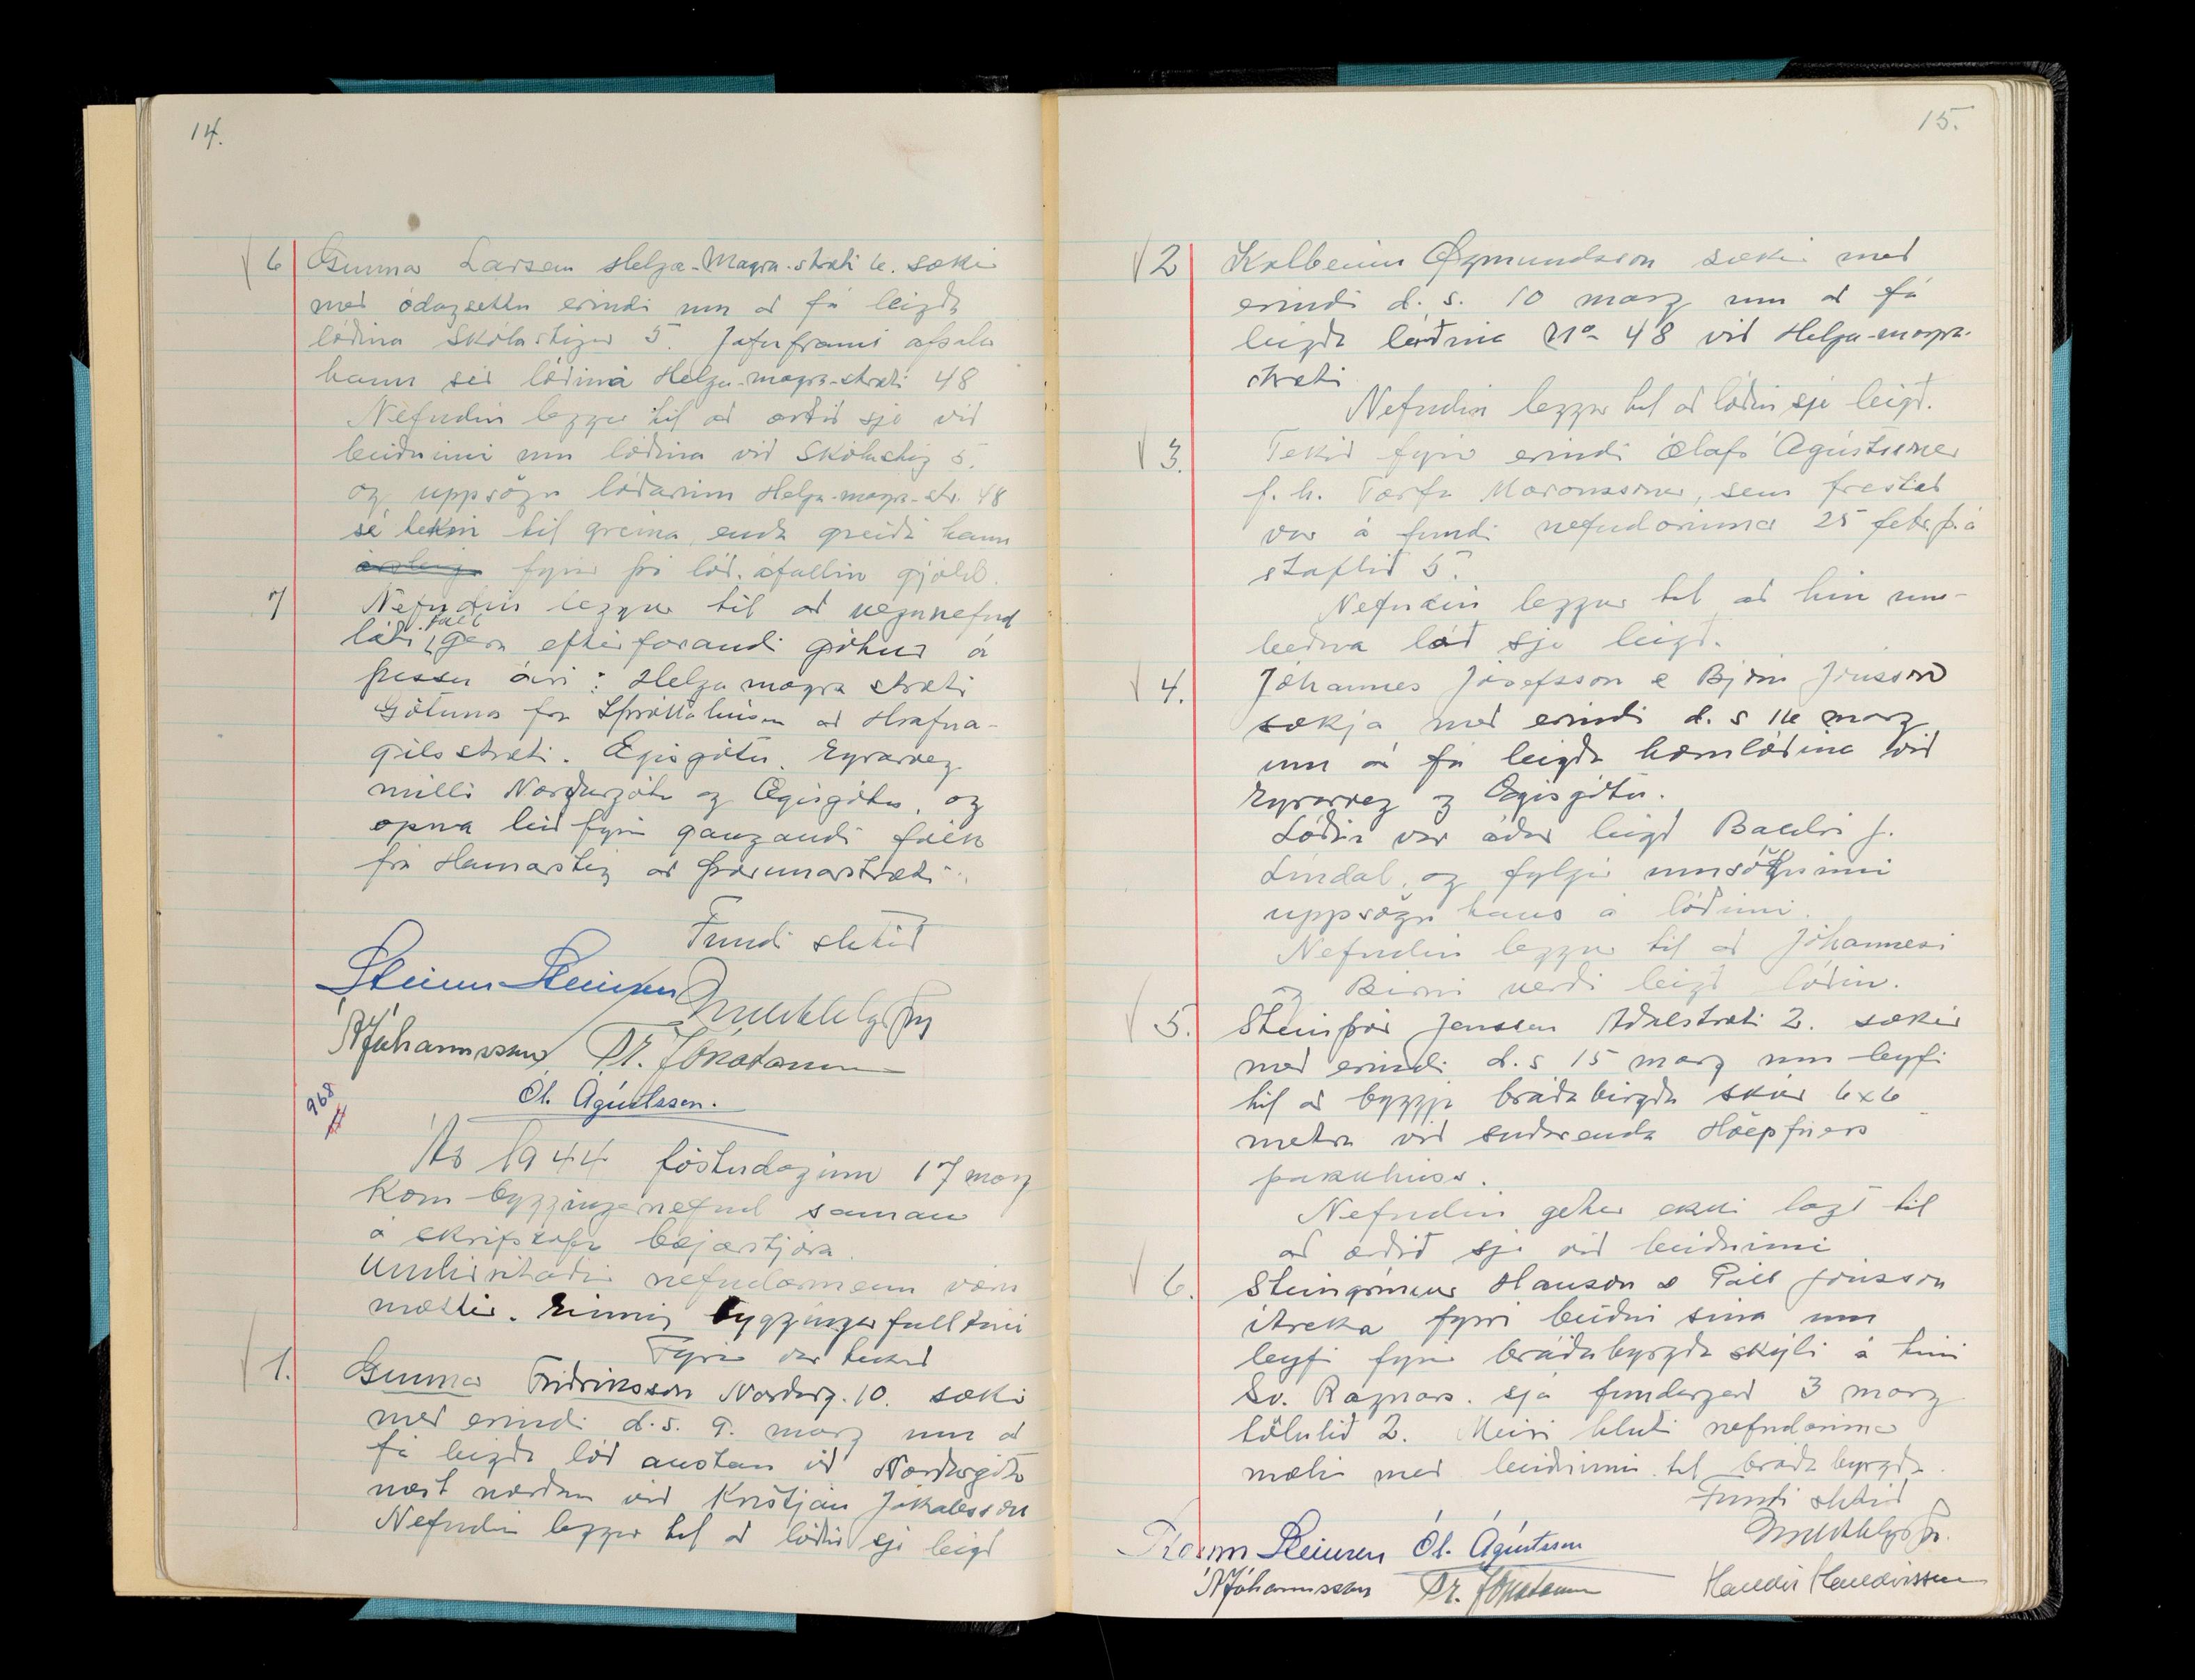 14.
6 Gunnar Larsen Helga-Magra-stræti 6. sækir
með ódagsettu erindi um að fá leigða
lóðina Skólastígur 5. Jafnframt afsalar
hann sér lóðinni Helga-magra-stræti 48
Nefndin leggur til að orðið sje við
beiðninni um lóðina við Skólastíg 5.
og uppsögn lóðarinnar Helga-magra-str. 48
sé tekin til greina, enda greiði hann
fyrir þá lóð áfallin gjöld.
7 Nefndin leggur til að veganefnd
láti full gera eftirfarandi götur á
þessu ári: Helga magra stræti
Götuna frá Íþróttahúsinu að Hrafna-
gilsstræti. Ægisgötu. Eyrarveg
milli Norðurgötu og Ægisgötu, og
opna leið fyrir gangandi fólk
frá Hamarstíg að Þórunnarstræti.
Fundi slitið
Steinn Steinsen
Jóhannsson Tr. Jónatansson
Ól. Ágústsson.
968
Ár 1944 föstudaginn 17 marz
kom bygginganefnd saman
á skrifstofu bæjarstjóra.
Undirritaðir nefndarmenn voru
mættir. Einnig byggingarfulltrúi
Fyrir var tekið
1. Gunnar Friðriksson Norðurg. 10. sækir
með erindi d.s. 9. marz um að
fá leigða lóð austan við Norðurgötu
næst norðan við Kristján Jakobsson
Nefndin leggur til að lóðin sje leigð
15.
2 Kolbeinn Ögmundsson sækir með
erindi d.s. 10 marz um að fá
leigða lóðina No 48 við Helga-magra-
stræti
Nefndin leggur til að lóðin sje leigð.
3. Tekið fyrir erindi Ólafs Ágústssonar
f.h. Torfa Maronssonar, sem frestað
var á fundi nefndarinnar 25 febr. þ.á
staflið 5.
Nefndin leggur til að hin um-
beðna lóð sje leigð.
4. Jóhannes Jósefsson & Björn Jónsson
sækja með erindi d.s 16 marz
um að fá leigða hornlóðina við
Eyrarveg og Ægisgötu.
Lóðin var áður leigð Baldri J.
Líndal, og fylgir umsókninni
uppsögn hans á lóðinni.
Nefndin leggur til að Jóhannesi
og Birni verði leigð lóðin.
5. Steinþór Jenssen Aðalstræti 2. sækir
með erindi d.s 15 marz um leyfi
til að byggja bráðabirgða skúr 6x6
metra við suðurenda Höepfners
pakkhúss.
Nefndin getur ekki lagt til
að orðið sje við beiðninni
6. Steingrímur Hanson & Páll Jónsson
ítreka fyrri beiðni sína um
leyfi fyrir bráðabyrgða skýli á túni
Sv. Ragnars. sjá fundargerð 3 marz
tölulið 2. Meiri hluti nefndarinnar
mælir með beiðninni til bráðabyrgða.
Fundi slitið
Steinn Steinsen Ól. Ágústsson
Jóhannsson Tr. Jónatansson Halldór Halldórsson